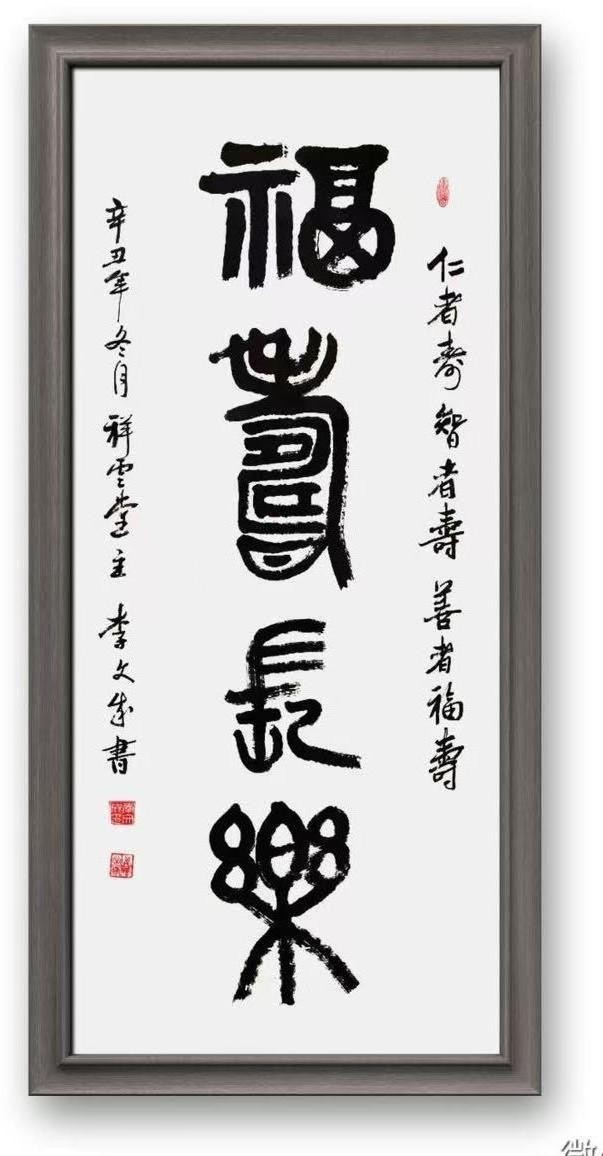 仁者寿 智者壽 善者福壽
福壽長樂
辛丑年冬月 祥雲堂主 李文成書
微